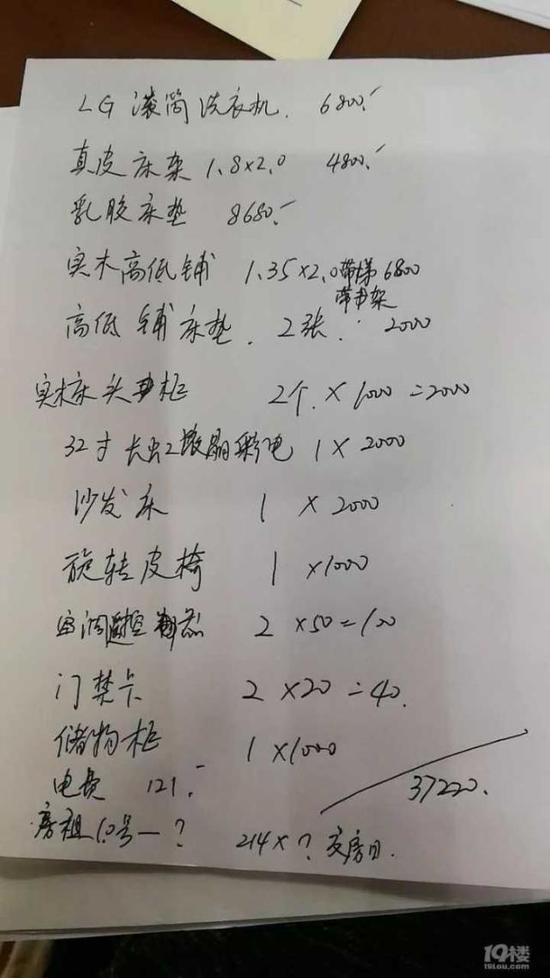 LG 滚筒洗衣机. 6800.-
真皮床架 1.8×2.0 4800.-
乳胶床垫 8680.-
实木高低铺 1.35×2.0带梯 6800
带书架
高低铺床垫. 2张. 2000
实木床头柜 2个.×1000=2000
32寸长虹液晶彩电 1×2000
沙发床 1×2000
旋转皮椅 1×1000
空调遥控器 2×50=100
门禁卡 2×20=40.
储物柜 1×1000
电费 121.-
37220.
房租10号—? 214×? 交房日.
19楼
19lou.com